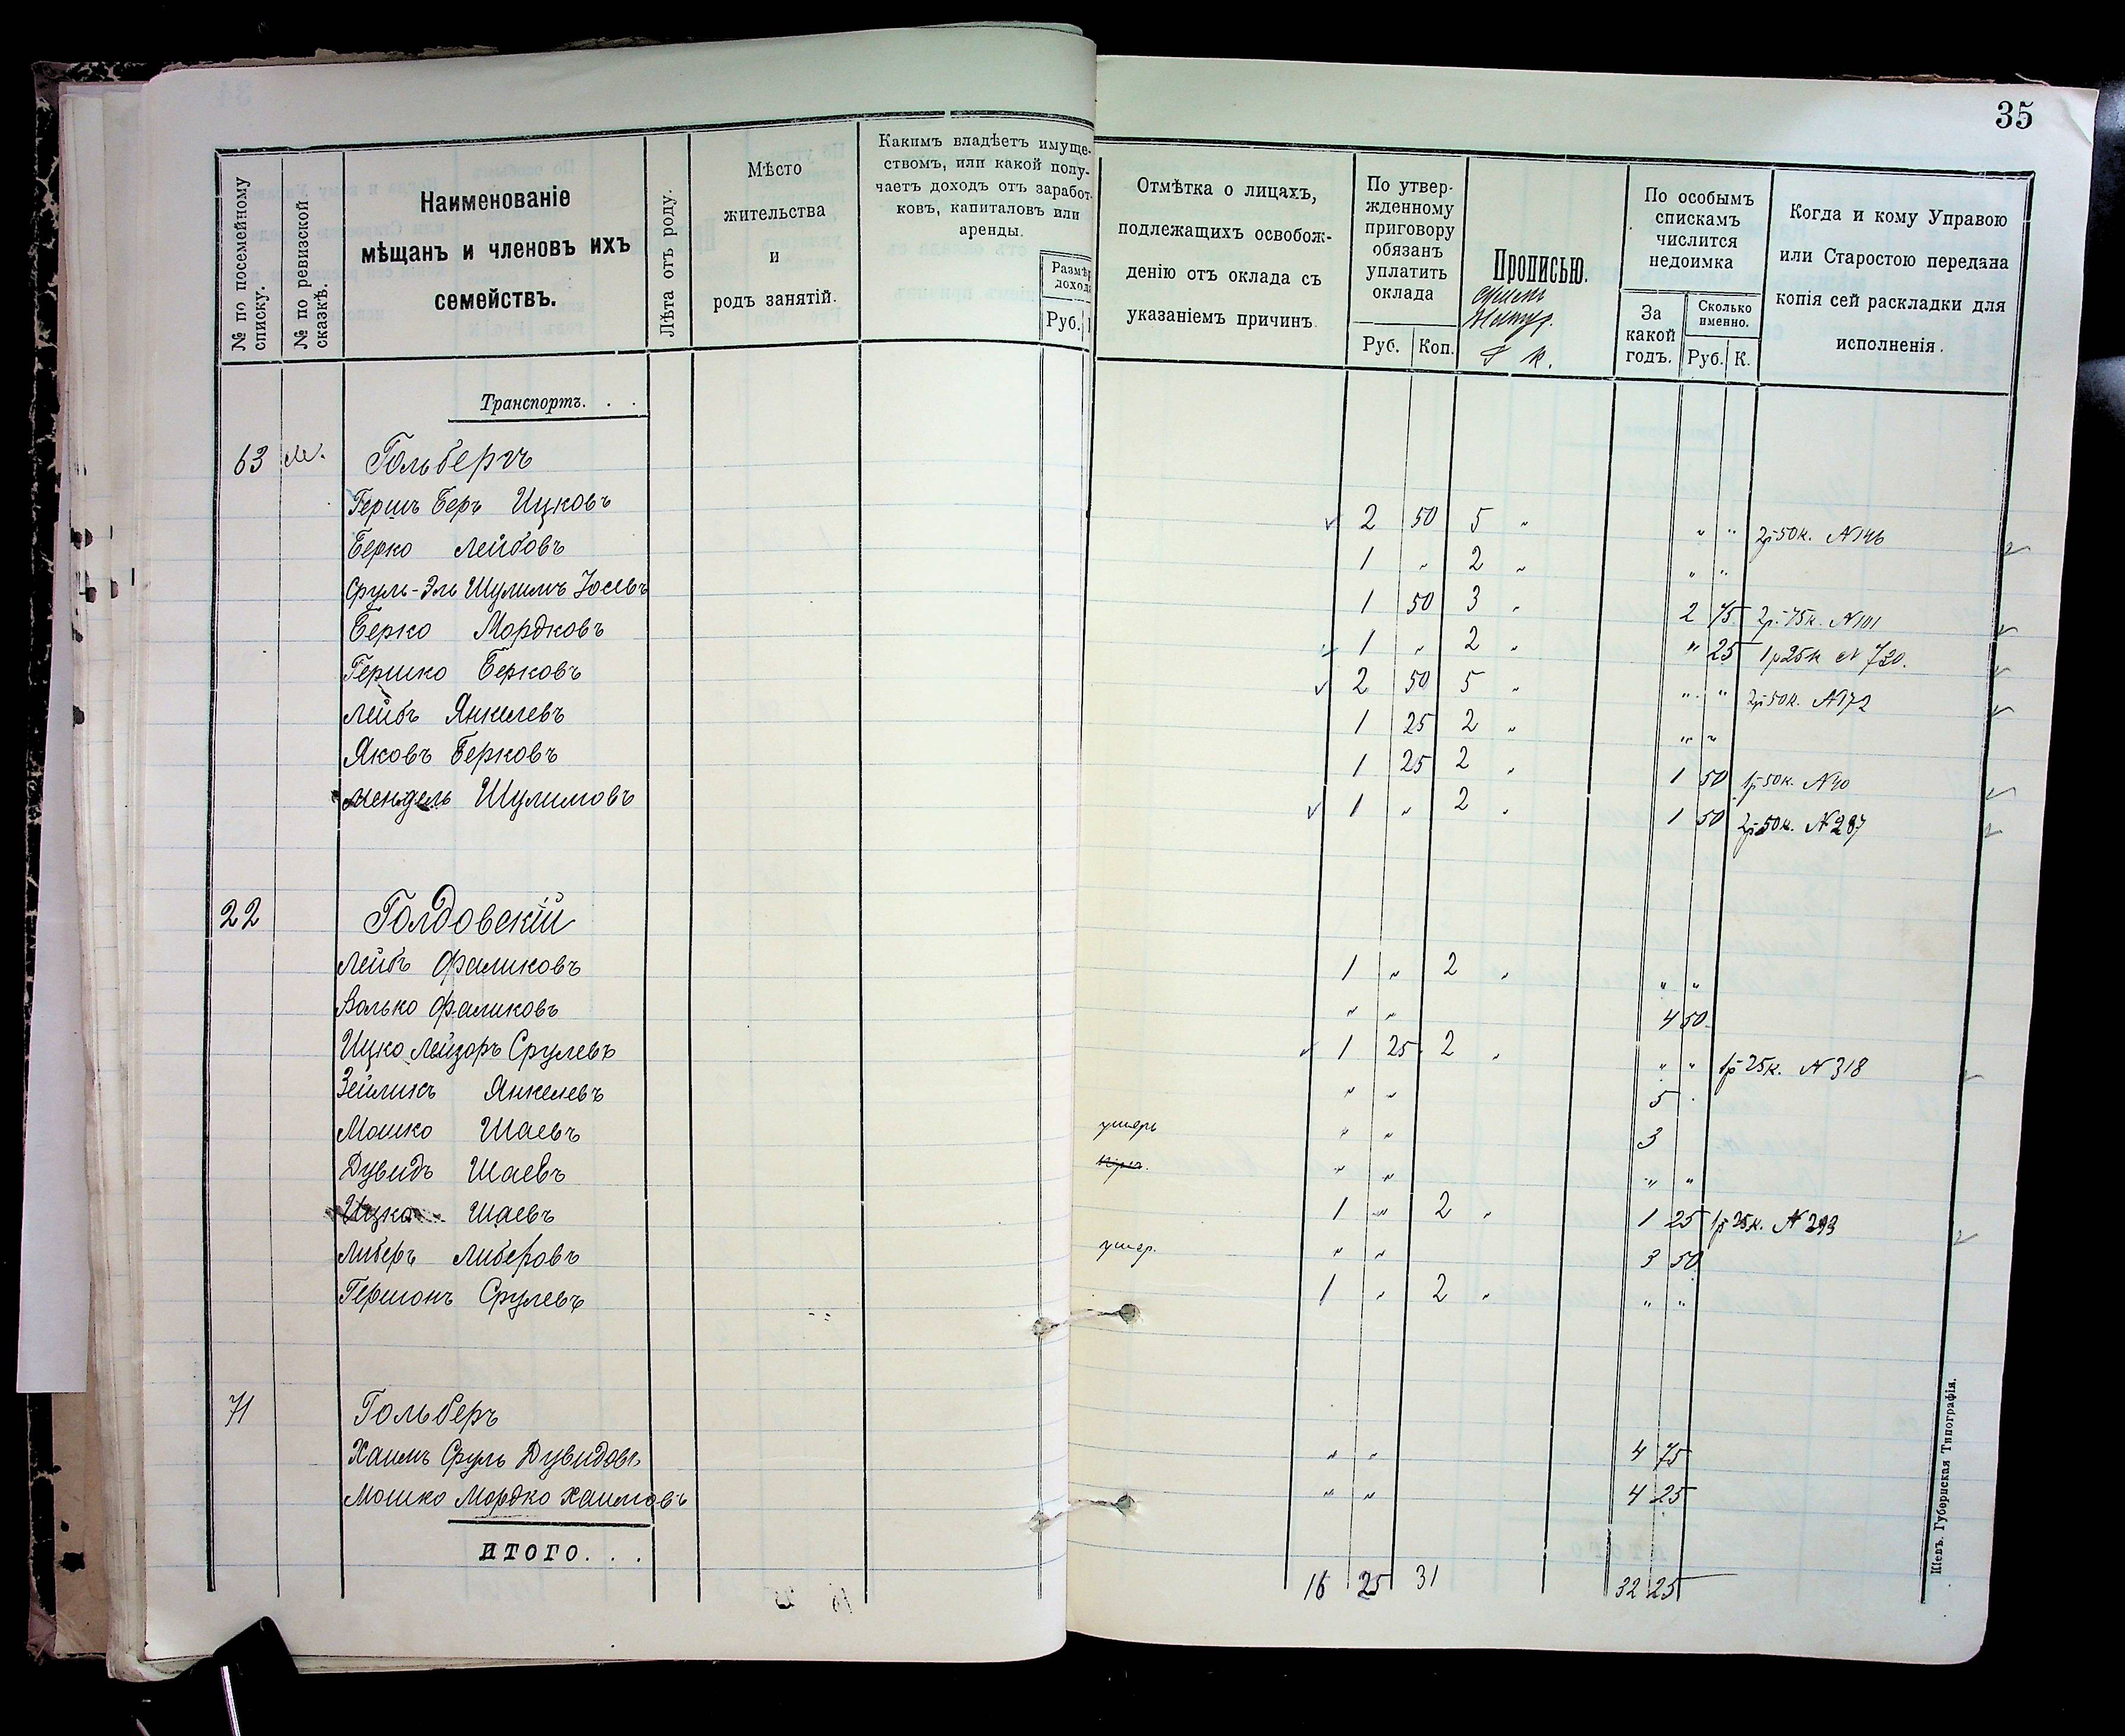 35
№ по посемейному списку.
№ по ревизской сказкѣ.
Наименованіе
мѣщанъ и членовъ ихъ
семействъ.
Лѣта отъ роду.
Мѣсто
жительства
и
родъ занятій.
Какимъ владѣетъ имуще-
ствомъ, или какой полу-
чаетъ доходъ отъ заработ-
ковъ, капиталовъ или
аренды.
Размѣр
дохода
Руб.
Отмѣтка о лицахъ,
подлежащихъ освобож-
денію отъ оклада съ
указаніемъ причинъ.
По утвер-
жденному
приговору
обязанъ
уплатить
оклада
Руб. Коп.
Прописью.
По особымъ
спискамъ
числится
недоимка
За
какой
годъ.
Сколько
именно.
Руб. К.
Когда и кому Управою
или Старостою передана
копія сей раскладки для
исполненія.
Транспортъ. . .
63 Гольбергъ
Гершъ Беръ Ицковъ 2 50 5 „ „ „ 2р 50к. №146
Берко Лейбовъ 1 „ 2 „ „ „
Сруль-Эль Шулимъ Іосевъ 1 50 3 „ 2 75 2р. 75к. №101
Берко Мордковъ 1 „ 2 „ „ 25 1р 25к № 720.
Гершко Берковъ 2 50 5 „ „ „ 2р 50к. №172
Лейбъ Янкелевъ 1 25 2 „ „ „
Яковъ Берковъ 1 25 2 „ 1 50 1р 50к. №40
Мендель Шулимовъ 1 „ 2 „ 1 50 2р 50к. №287
22 Голдовскій
Лейбъ Фаликовъ 1 „ 2 „ „ „
Волько Фаликовъ „ „ 4 50
Ицко Лейзоръ Срулевъ 1 25 2 „ „ „ 1р 25к. №318
Зейликъ Янкелевъ „ „ 5 „
Мошко Шаевъ умеръ „ „ 3
Дувидъ Шаевъ „ „ „ „
Ицко Шаевъ 1 „ 2 „ 1 25 1р 25к. №293
Либеръ Либеровъ умер. „ „ 3 50
Гершонъ Срулевъ 1 „ 2 „ „ „
71 Гольберъ
Хаимъ Сруль Дувидовъ „ „ 4 75
Мошко Мордко Хаимовъ „ „ 4 25
ИТОГО. . .
16 25 31 32 25
Кіевъ. Губернская Типографія.